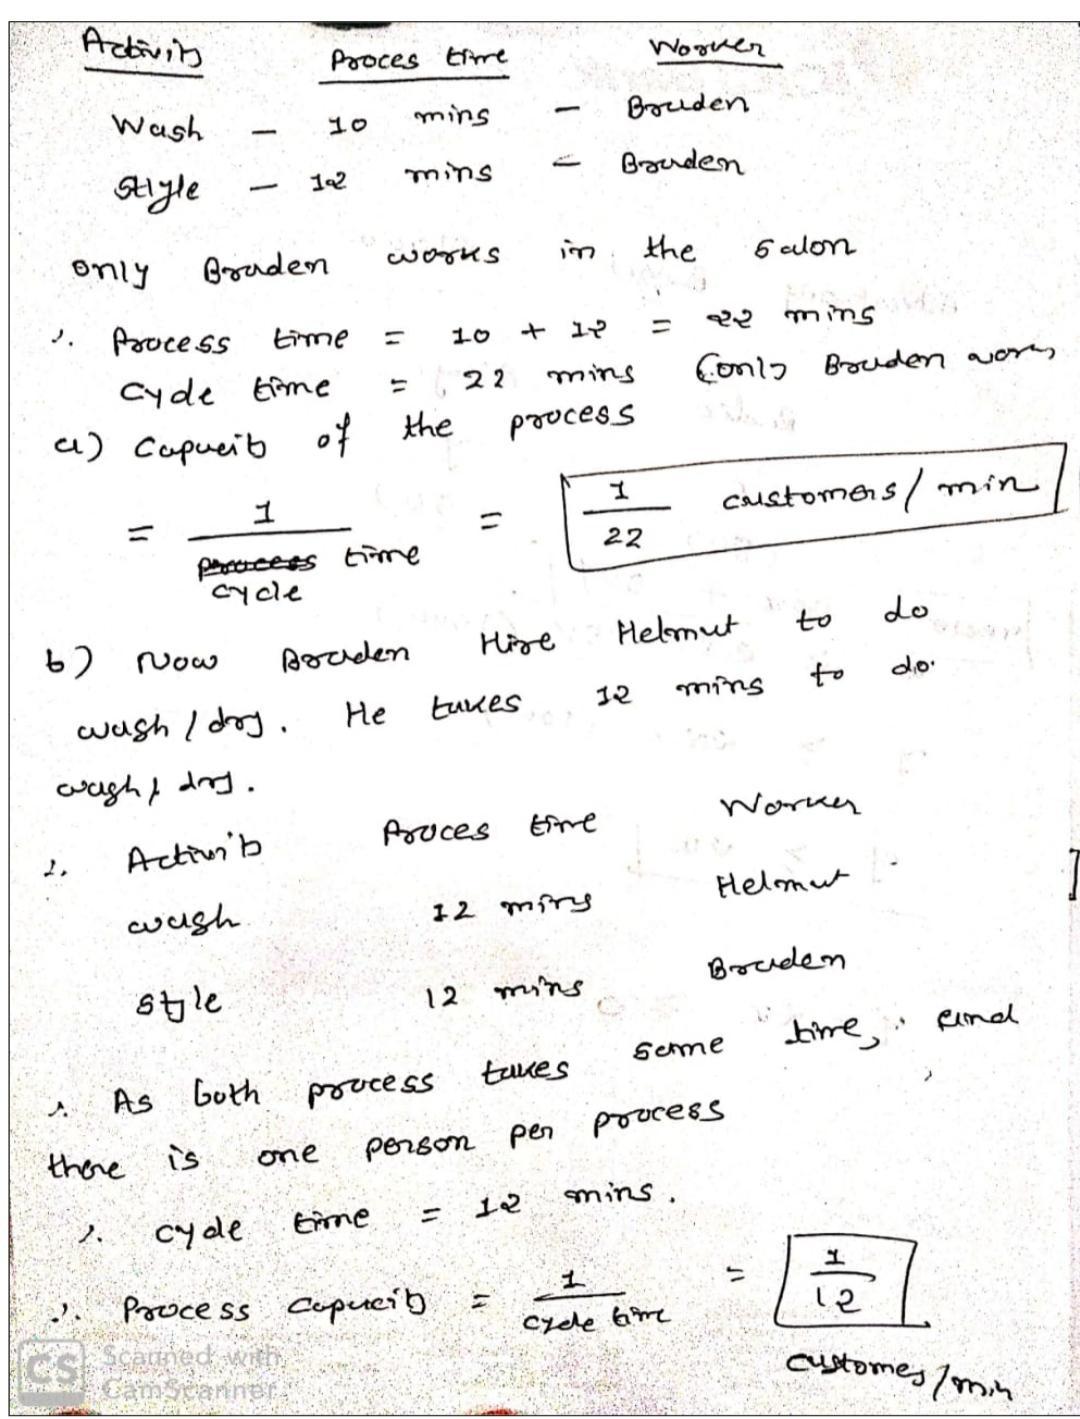 Activity Proces time Worker
Wash - 10 mins - Braden
Style - 12 mins - Braden
only Braden works in the salon
∴ Process time = 10 + 12 = 22 mins
Cycle time = 22 mins (only Braden work
a) Capacity of the process
= 1 / process time cycle = 1/22 customers/min
b) Now Braden Hire Helmut to do
wash / dry. He takes 12 mins to do
wash / dry.
∴ Activity Proces time Worker
wash 12 mins Helmut
style 12 mins Braden
∴ As both process takes same time, and
there is one person per process
∴ cycle time = 12 mins.
∴ Process capacity = 1 / cycle time = 1/12
customes/min
CS Scanned with
CamScanner